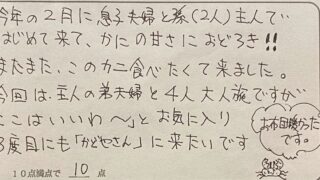 今年の2月に息子夫婦と孫(2人)主人で
はじめて来て、かにの甘さにおどろき!!
またまた、このカニ食べたくて来ました。
今回は主人の弟夫婦と4人大人旅ですが
ここはいいわ〜」とお気に入り
3度目にも「かどやさん」に来たいです
お布団暖かった
です。
10点満点で 10 点